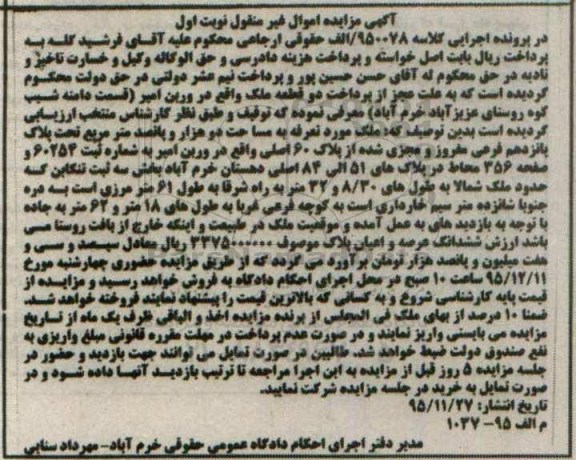 آگهی مزایده اموال غیر منقول نوبت اول
در پرونده اجرایی کلاسه ۹۵۰۰۷۸/الف حقوقی ارجاعی محکوم علیه آقـای فرشـید گلـه بـه
پرداخت ریال بابت اصل خواسته و پرداخت هزینه دادرسی و حق الوکاله وکیل و خسارت تاخیر و
تادیه در حق محکوم له آقای حسن حسین پور و پرداخت نیم عشر دولتی در حق دولت محکـوم
گردیده است که به علت عجز از پرداخت دو قطعه ملک واقع در ورین امیر (قسمت دامنه شـیب
کوه روستای عزیزآباد خرم آباد) معرفی نموده که توقیف و طبق نظر کارشناس منتخب ارزیـابی
گردیده است بدین توصیف که: ملک مورد تعرفه به مسا حت دو هزار و پانصد متر مربع تحت پلاک
پانزدهم فرعی مفروز و مجزی شده از پلاک ۶۰ اصلی واقع در ورین امیر به شماره ثبت ۶۰۲۵۴ و
صفحه ۳۵۶ محاط در پلاک های ۵۱ الی ۸۴ اصلی دهستان خرم آباد بخش سه ثبت تنکابن کـه
حدود ملک شمالا به طول های ۸/۳۰ و ۳۲ متر به راه شرقا به طول ۶۱ متر مرزی است بـه دره
جنوبا شانزده متر سیم خارداری است به کوچه فرعی غربا به طول های ۱۸ متر و ۶۲ متر به جاده
با توجه به بازدید های به عمل آمده و موقعیت ملک در طبیعت و اینکه خارج از بافت روستا مـی
باشد ارزش ششدانگ عرصه و اعیان پلاک موصوف ۳۳۷۵۰۰۰۰۰۰ ریال معادل سیـصد و سـی و
هفت میلیون و پانصد هزار تومان بر آورد می گردد که از طریق مزایده حضوری چهارشنبه مورخ
۹۵/۱۲/۱۱ ساعت ۱۰ صبح در محل اجرای احکام دادگاه به فروش خواهد رسـید و مزایـده از
قیمت پایه کارشناسی شروع و به کسانی که بالاترین قیمت را پیشنهاد نمایند فروخته خواهد شـد.
ضمنا ۱۰ درصد از بهای ملک فی المجلس از برنده مزایده اخذ و الباقی ظرف یک ماه از تـاریخ
مزایده می بایستی واریز نمایند و در صورت عدم پرداخت در مهلت مقرره قانونی مبلغ واریزی به
نفع صندوق دولت ضبط خواهد شد. طالبین در صورت تمایل می توانند جهت بازدید و حضور در
جلسه مزایده ۵ روز قبل از مزایده به این اجرا مراجعه تا ترتیب بازدیـد آنهـا داده شـود و در
صورت تمایل به خرید در جلسه مزایده شرکت نمایید.
تاریخ انتشار: ۹۵/۱۱/۲۷
م الف ۹۵- ۱۰۳۷
مدیر دفتر اجرای احکام دادگاه عمومی حقوقی خرم آباد- مهرداد سنایی